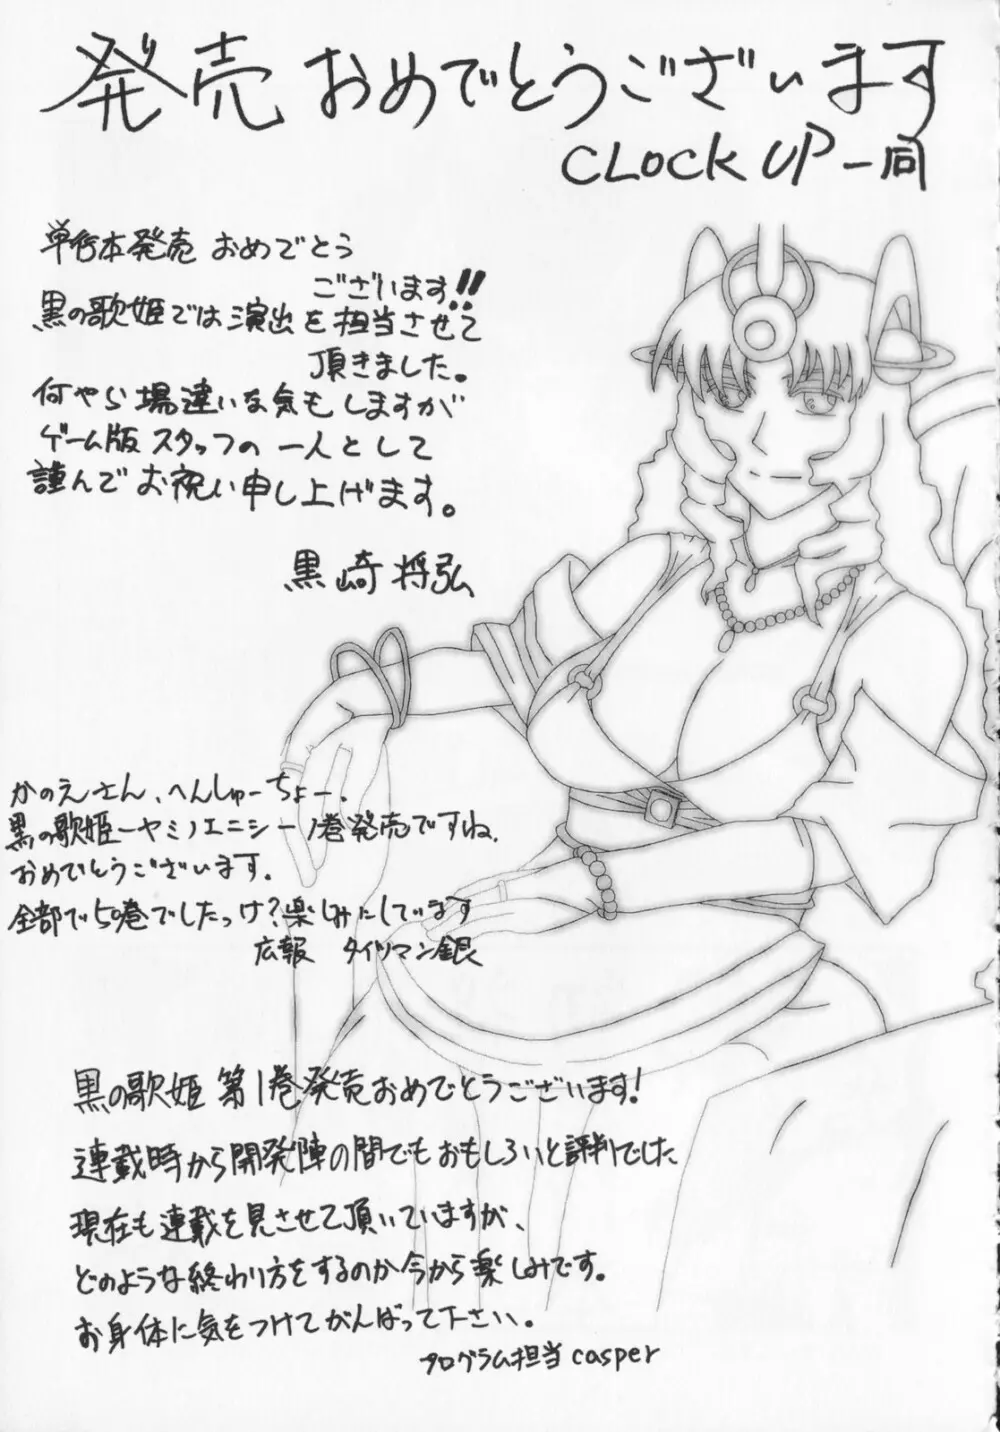 発売おめでとうございます
CLOCK UP 一同
単行本発売 おめでとう
ございます!!
黒の歌姫では演出を担当させて
頂きました。
何やら場違いな気もしますが
ゲーム版スタッフの一人として
謹んでお祝い申し上げます。
黒崎将弘
かのえさん、へんしゅーちょー、
黒の歌姫ーヤミノエニシー1巻発売ですね。
おめでとうございます。
全部で50巻でしたっけ?楽しみにしています
広報 タイツマン銀
黒の歌姫 第1巻発売おめでとうございます!
連載時から開発陣の間でもおもしろいと評判でした
現在も連載を見させて頂いていますが、
どのような終わり方をするのか今から楽しみです。
お身体に気をつけてがんばって下さい。
プログラム担当 casper